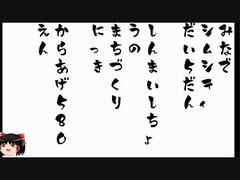 みなで
シムシティ
だい5だん
しんまいしちょ
うの
まちづくり
にっき
からあげ580
えん